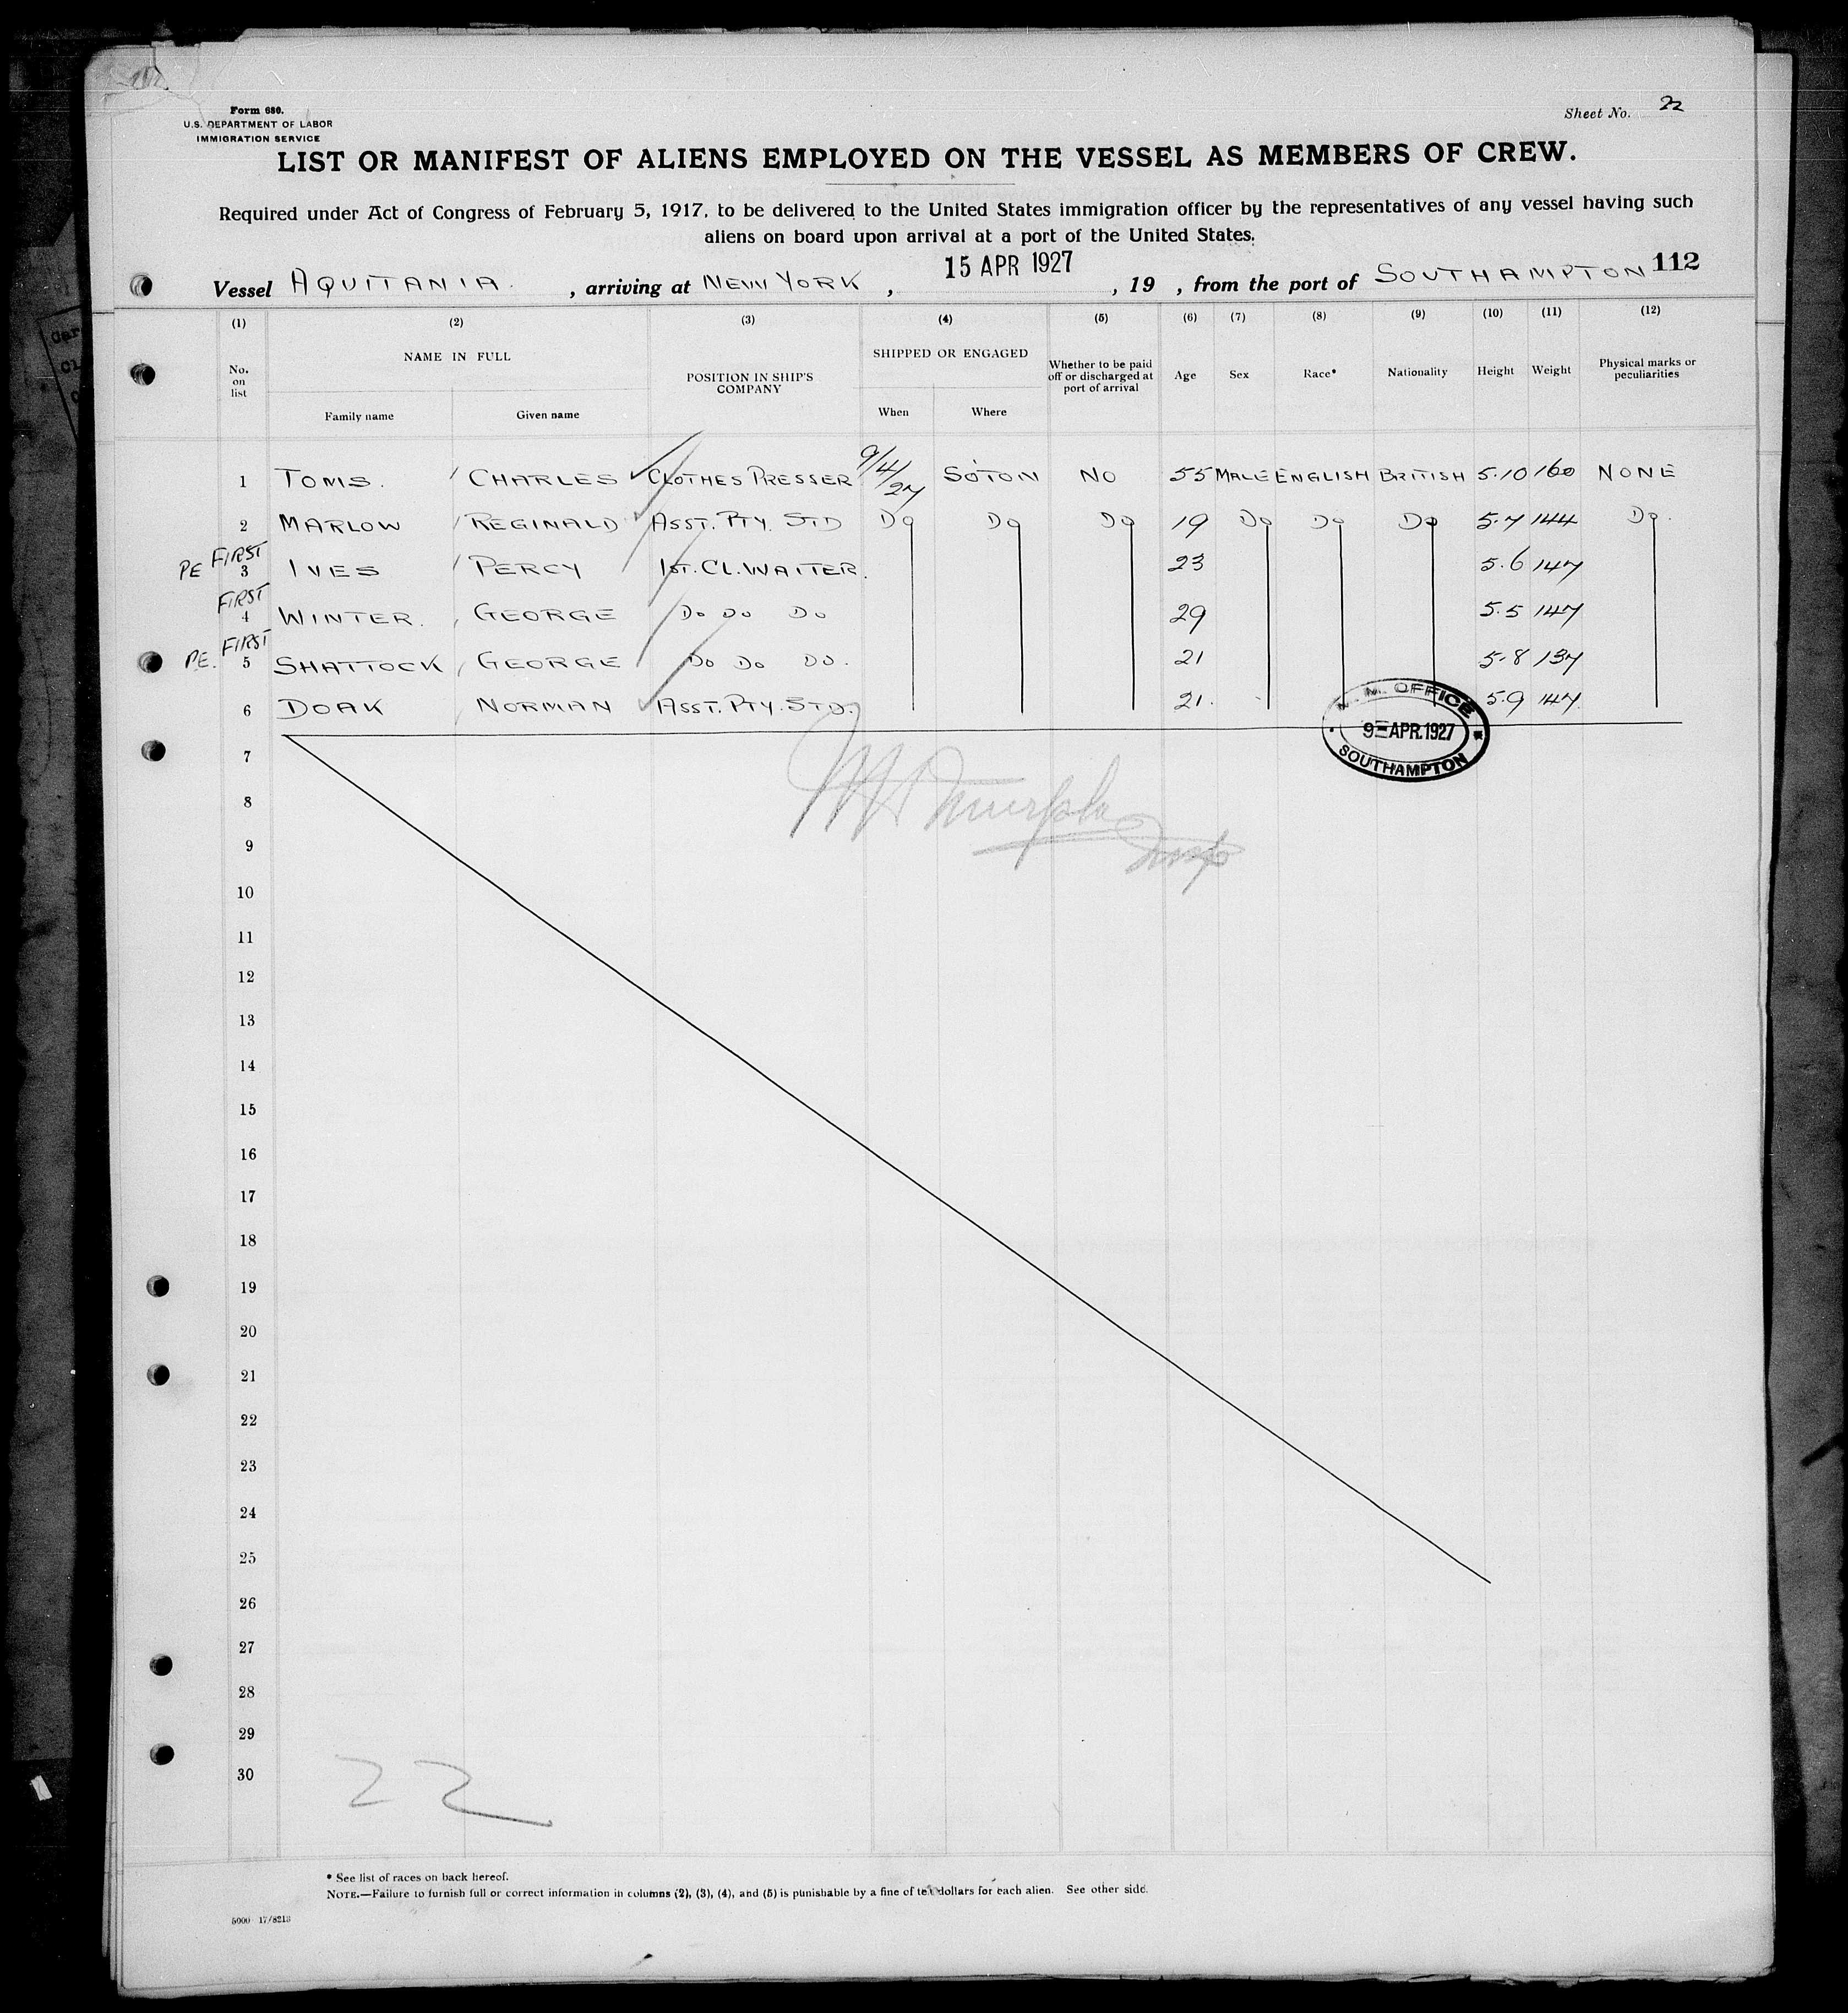 Form 680.
U.S. DEPARTMENT OF LABOR
IMMIGRATION SERVICE
Sheet No. 22
LIST OR MANIFEST OF ALIENS EMPLOYED ON THE VESSEL AS MEMBERS OF CREW.
Required under Act of Congress of February 5, 1917, to be delivered to the United States immigration officer by the representatives of any vessel having such
aliens on board upon arrival at a port of the United States.
Vessel AQUITANIA. , arriving at NEW YORK , 15 APR 1927 , 19 , from the port of SOUTHAMPTON 112
(1) (2) (3) (4) (5) (6) (7) (8) (9) (10) (11) (12)
No. on list NAME IN FULL Family name Given name POSITION IN SHIP'S COMPANY SHIPPED OR ENGAGED When Where Whether to be paid off or discharged at port of arrival Age Sex Race* Nationality Height Weight Physical marks or peculiarities
1 TOMS. CHARLES CLOTHES PRESSER 9/4/27 SO'TON NO 55 MALE ENGLISH BRITISH 5.10 160 NONE
2 MARLOW REGINALD ASST. PTY. STD Do Do Do 19 Do Do Do 5.7 144 Do.
PE FIRST 3 IVES PERCY 1ST. CL. WAITER. 23 5.6 147
FIRST 4 WINTER. GEORGE Do Do Do 29 5.5 147
PE. FIRST 5 SHATTOCK GEORGE Do Do Do. 21 5.8 137
6 DOAK NORMAN ASST. PTY. STD. 21. 5.9 147
M. OFFICE
9 APR. 1927
SOUTHAMPTON
7
8
9
10
11
12
13
14
15
16
17
18
19
20
21
22
23
24
25
26
27
28
29
30
22
* See list of races on back hereof.
NOTE.—Failure to furnish full or correct information in columns (2), (3), (4), and (5) is punishable by a fine of ten dollars for each alien. See other side.
5000 17/8213